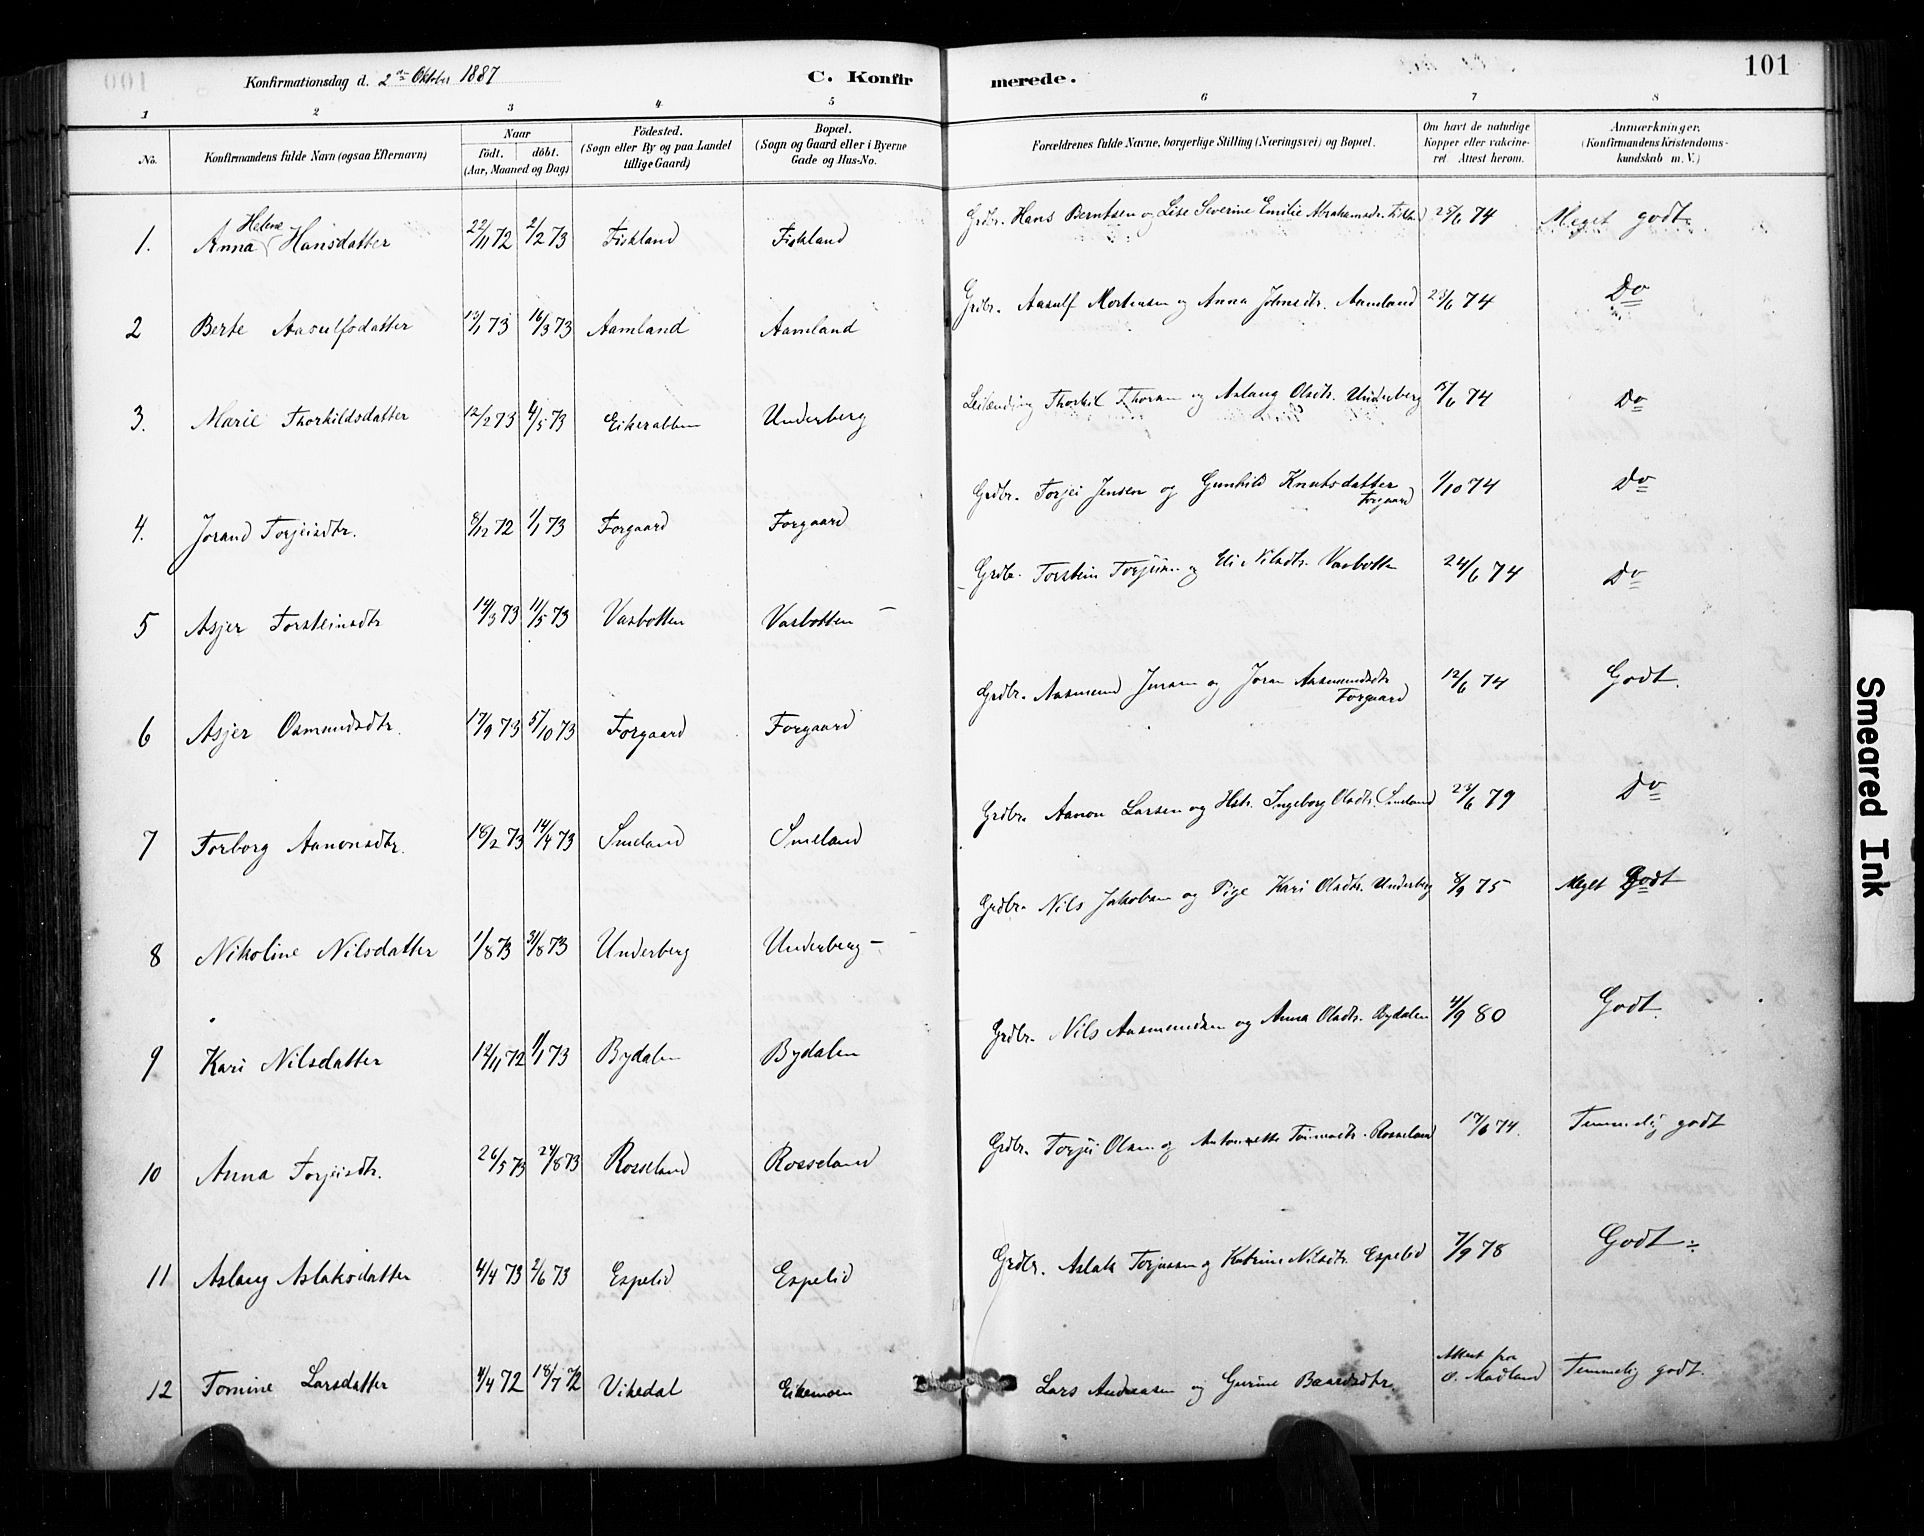 Konfirmationsdag d. 2den Oktober 1887
C. Konfirmerede.
101
1 2 3 4 5 6 7 8
No.
Konfirmandens fulde Navn (ogsaa Efternavn)
Naar
födt. döbt.
(Aar, Maaned og Dag)
Födested.
(Sogn eller By og paa Landet
tillige Gaard)
Bopæl.
(Sogn og Gaard eller i Byerne
Gade og Hus-No.
Forældrenes fulde Navne, borgerlige Stilling (Næringsvei) og Bopæl.
Om havt de naturlige
Kopper eller vakcine-
ret Attest herom.
Anmærkninger.
(Konfirmandens Kristendoms-
kundskab m. V.)
1. Anna Helene Hansdatter 22/11 72 2/2 73 Fiskland Fiskland Grdbr. Hans Berntsen og Lise Severine Emilie Abrahamsdr. 25/6 74 Meget godt.
2 Berte Aasulfsdatter 13/1 73 16/3 73 Aamland Aamland Grdbr. Aasulf Mortensen og Anna Johnsdtr. Aamland 23/6 74 Do
3. Marie Thorkildsdatter 12/2 73 4/5 73 Eikerabben Underberg Leilænding Thorkil Thorsen og Aslaug Olsdtr. Underberg 13/6 74 Do
4. Jorand Torjeisdtr. 8/12 72 1/1 73 Forgaard Forgaard Grdbr. Torjei Jensen og Gunhild Knutsdatter Forgaard 1/10 74 Do
5 Asjer Torsteinsdtr 14/3 73 11/5 73 Vasbotten Vasbotten – Grdbr. Torstein Torjeisen og Eli Nilsdtr. Vasbotten 24/6 74 Do
6 Asjer Osmundsdtr. 17/9 73 5/10 73 Forgaard Forgaard Grdbr. Aasmund Jensen og Joran Aasmundsdtr Forgaard 12/6 74 Godt.
7 Torborg Aanonsdtr. 16/2 73 14/4 73 Smeland Smeland Grdbr. Aanon Larsen og Hstr. Ingeborg Olsdtr. Smeland 23/6 79 Do
8 Nikoline Nilsdatter 1/8 73 31/8 73 Underberg Underberg – Grdbr. Nils Jakobsen og Pige Kari Olsdtr. Underberg 8/9 75 Meget Godt
9 Kari Nilsdatter 12/11 72 1/1 73 Bydalen Bydalen Grdbr. Nils Aasmundsen og Anna Olsdtr. Bydalen 4/9 80 Godt.
10 Anna Torjeisdtr. 26/5 73 24/8 73 Rosseland Rosseland Grdbr. Torjei Olsen og Antonette Rosseland 17/6 74. Temmelig godt
11 Aslaug Aslaksdatter 4/4 73 2/6 73 Espelid Espelid Grdbr. Aslak Torjussen og Katrine Nilsdtr. Espelid 7/9 78 Godt.
12 Tomine Larsdatter 4/4 72 18/7 72 Vikedal Eikemoen Lars Andreasen og Gurine Baardsdtr. Attest fra O. Madland Temmelig godt.
Smeared Ink